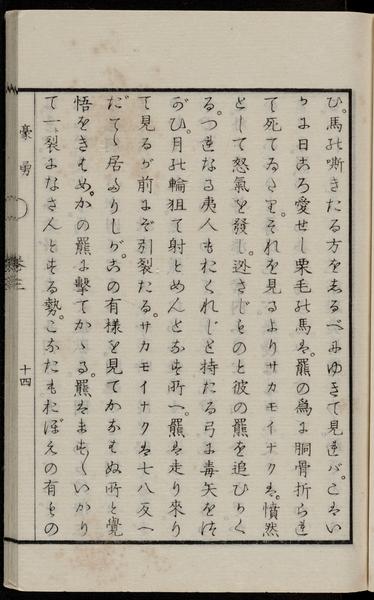 ひ。馬の嘶きたる方をしるべにゆきて見ればこはい
かに日ころ愛せし栗毛の馬は。羆の為に胴骨折られ
て死てゐたり。それを見るよりサカモイナクは。憤然
として怒氣を發し。逃さじものと彼の羆を追ひゆく
る。つれなる夷人もおくれじと持たる弓に毒矢をは
げひ。月の輪狙て射とめんとなす所へ。羆は走り來り
て見るが前にぞ引裂たる。サカモイナクは七八反へ
だてゝ居たりしが。この有様を見てかなはぬ所と覺
悟をきはめ。かの羆に撃てかゝる。羆はますますいかり
て一裂になさんとする勢。こなたもおぼえの有もの
豪勇
卷三
十四